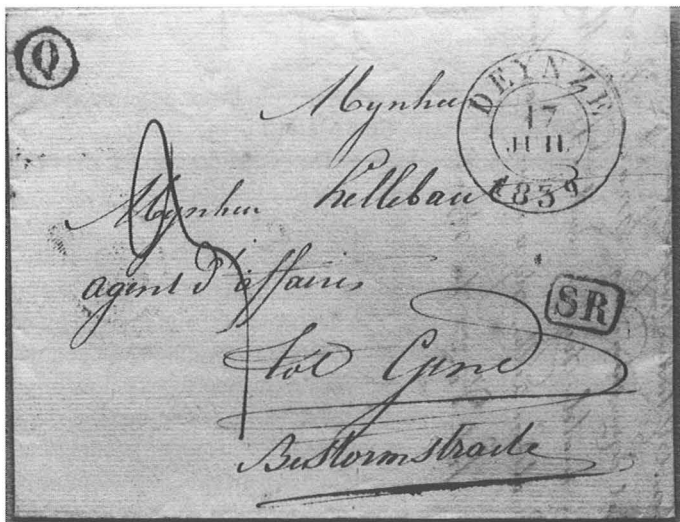 Q
DEYNZE
17
JUIL
1839
Mynheer
Mynheer Hellebaut
agent d'affaires
SR
tot Gend